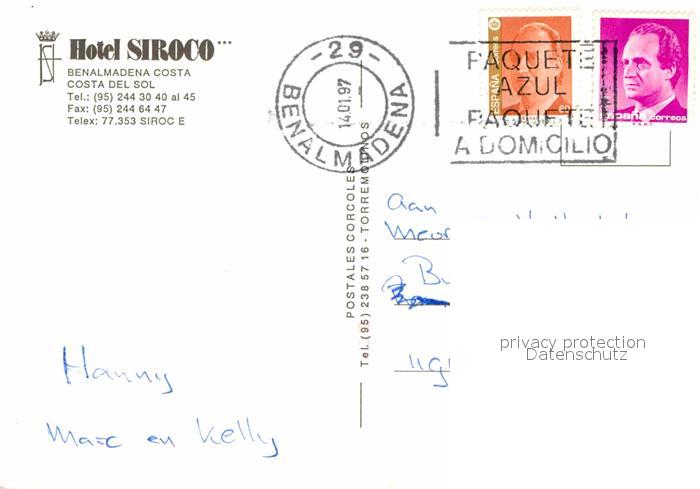 Hotel SIROCO***
BENALMADENA COSTA
COSTA DEL SOL
Tel.: (95) 244 30 40 al 45
Fax: (95) 244 64 47
Telex: 77.353 SIROC E
-29-
14.01.97
BENALMADENA
PAQUETE
AZUL
PAQUETE
A DOMICILIO
ESPAÑA
60
españa correos
POSTALES CORCOLES - TORREMOLINOS
Tel. (95) 238 57 16
Aan
Hanny
Marc en Kelly
privacy protection
Datenschutz